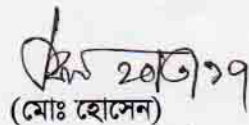 ২০/৩/১৭
(মোঃ হোসেন)